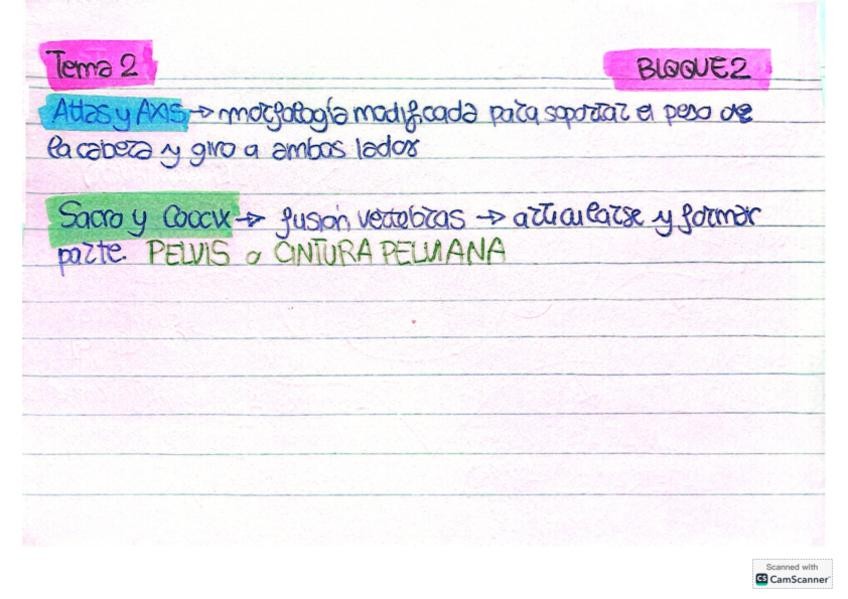 Tema 2 BLOQUE 2
Atlas y AXIS → morfología modificada para soportar el peso de
la cabeza y giro a ambos lados
Sacro y Coccix → fusión vertebras → articularse y formar
parte. PELVIS o CINTURA PELVIANA
Scanned with
CS CamScanner